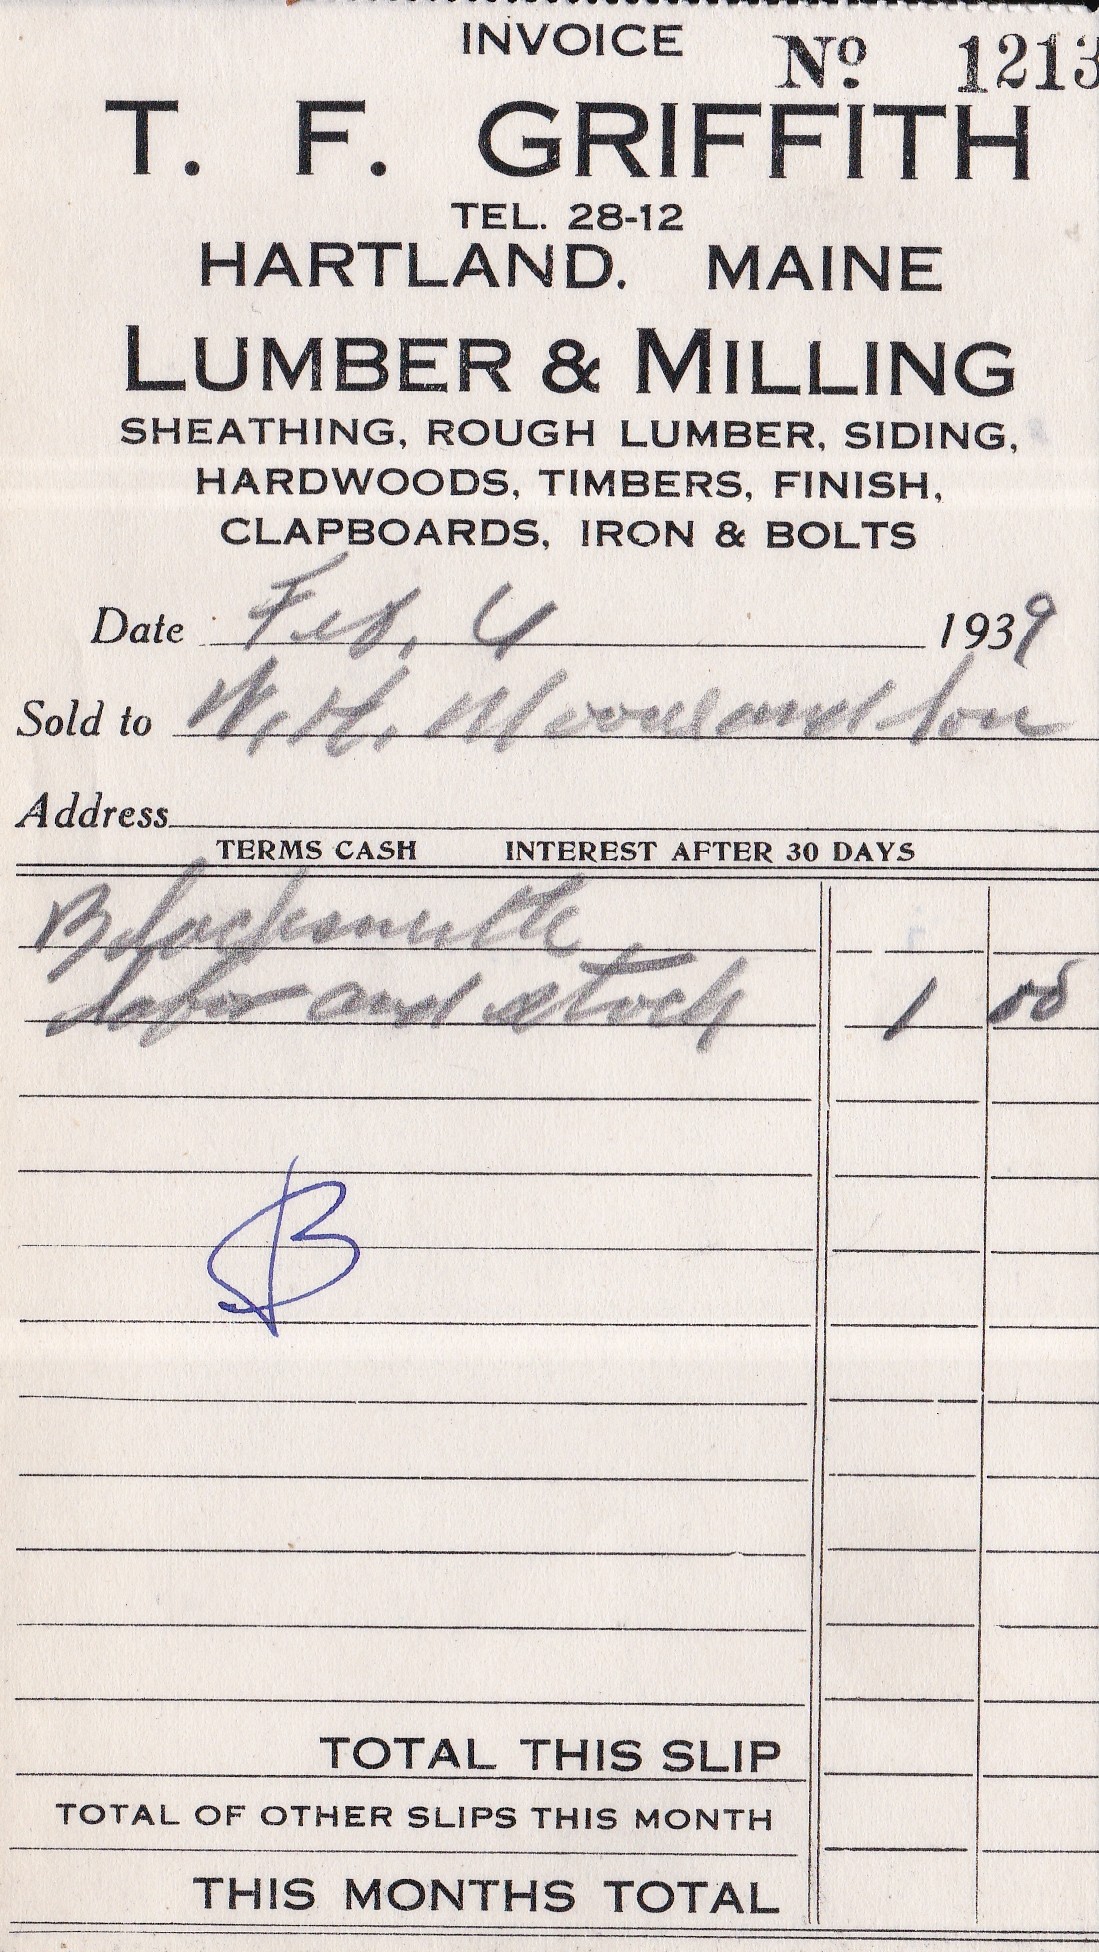 INVOICE
Nº 1213
T. F. GRIFFITH
TEL. 28-12
HARTLAND. MAINE
LUMBER & MILLING
SHEATHING, ROUGH LUMBER, SIDING,
HARDWOODS, TIMBERS, FINISH,
CLAPBOARDS, IRON & BOLTS
Date Feb. 4 1939
Sold to W. H. Moore and Son
Address
TERMS CASH INTEREST AFTER 30 DAYS
Blacksmith
labor and stock 1 00
B
TOTAL THIS SLIP
TOTAL OF OTHER SLIPS THIS MONTH
THIS MONTHS TOTAL